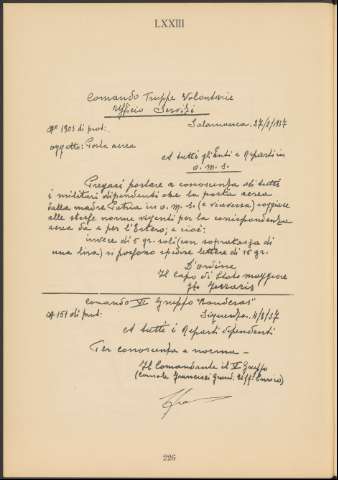 LXXIII
Comando Truppe Volontarie
Ufficio Servizi
No 1903 di prot: Salamanca, 27/3/937
oggetto: Posta aerea
A tutti gli Enti e Reparti in
O. M. S.
Pregasi portare a conoscenza di tutti
i militari dipendenti che la posta aerea
dalla madre Patria in O. M. S. (e viceversa) soggiace
alle stesse norme vigenti per la corrispondenza
aerea da e per l'Estero; e cioè:
invece di 5 gr. soli (con sopratassa di
una lira) si possono spedire lettere di 15 gr.
D'ordine
Il Capo di Stato maggiore
fto
Comando VI Gruppo "Banderas"
No 151 di prot: Siguenza, 4/4/37
A tutti i Reparti dipendenti
Per conoscenza e norma -
Il Comandante il Gruppo
(Console Francisci Enrico)
226